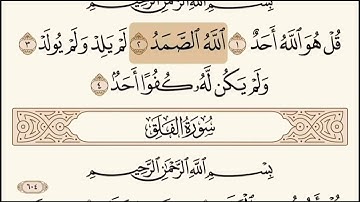 بِسْمِ ٱللَّهِ ٱلرَّحْمَٰنِ ٱلرَّحِيمِ
قُلْ هُوَ ٱللَّهُ أَحَدٌ ١ ٱللَّهُ ٱلصَّمَدُ ٢ لَمْ يَلِدْ وَلَمْ يُولَدْ ٣
وَلَمْ يَكُن لَّهُۥ كُفُوًا أَحَدٌۢ ٤
سُورَةُ ٱلْفَلَقِ
بِسْمِ ٱللَّهِ ٱلرَّحْمَٰنِ ٱلرَّحِيمِ
٦٠٤